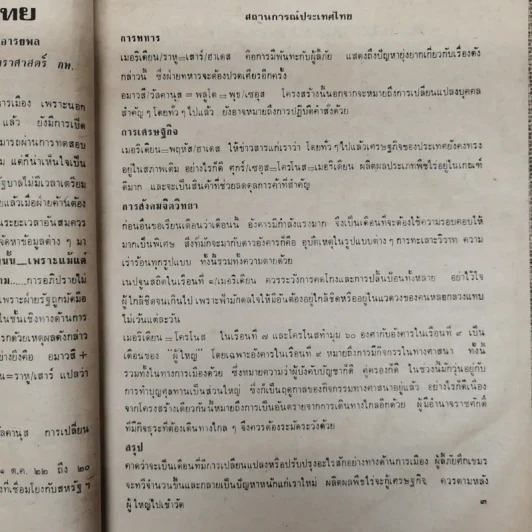 ไทย
อารยพล
ราศาสตร์ กพ.
ารเมือง เพราะนอก
แล้ว ยังมีการเปิด
มารถผ่านการทดสอบ
ม แต่ก็น่าเห็นใจเป็น
รัฐบาลไม่มีเวลาเตรียม
ยแล้วเมื่อฝ่ายค้านต้อง
นระยะเวลาอันสมควร
จัดหาข้อมูลต่าง ๆ มา
นั้น...เพราะแม้แต่
าม......การอภิปรายไม่
เพราะฝ่ายรัฐถูกมัดมือ
ในชั้นเชิงทางด้านการ
รกด้วยเหตุผลดังกล่าว
ย่างยิ่งคือ อมาวสี +
น=ราหู/เสาร์ แปลว่า
วัลคานุส การเปลี่ยน
๑ ต.ค. ๒๒ ถึง ๒๐
งที่เชื่อมโยงกับสหรัฐฯ
สถานการณ์ประเทศไทย
การทหาร
เมอริเดียน/ราหู=เสาร์/ฮาเดส คือการมีพันทะกับผู้ลี้ภัย แสดงถึงปัญหายุ่งยากเกี่ยวกับเรื่องดัง
กล่าวนี้ ซึ่งฝ่ายทหารจะต้องปวดเศียรอีกครั้ง
อมาวสี/วัลคานุส = พลูโต = พุธ/เซอุส โครงสร้างนี้นอกจากจะหมายถึงการเปลี่ยนแปลงบุคคล
สำคัญๆ โดยทั่วๆ ไปแล้ว ยังอาจหมายถึงการปฏิบัติค้าส่งด้วย
การเศรษฐกิจ
เมอริเดียน=พฤหัส/ฮาเดส ให้ข่าวสารแก่เราว่า โดยทั่วๆ ไปแล้วเศรษฐกิจของประเทศยังคงทรง
อยู่ในสภาพเดิม อย่างไรก็ดี ศุกร์/เซอุส=โครโนส=เมอริเดียน ผลิตผลประเภทพืชไร่อยู่ในเกณฑ์
ดีมาก และจะเป็นสินค้าที่ช่วยลดดุลการค้าที่สำคัญ
การสังคมจิตวิทยา
ก่อนอื่นขอเรียนเตือนว่าเดือนนี้ อังคารมีกำลังแรงมาก จึงเป็นเดือนที่จะต้องใช้ความรอบคอบให้
มากเป็นพิเศษ สิ่งที่มักจะมากับดาวอังคารก็คือ อุบัติเหตุในรูปแบบต่างๆ การทะเลาะวิวาท ความ
เร่าร้อนทุกรูปแบบ ทั้งนี้รวมทั้งความตายด้วย
เนปจูนสถิตในเรือนที่ ๗/เมอริเดียน ควรระวังการคดโกงและการปลิ้นป้อนทั้งหลาย อย่าไว้ใจ
ผู้ใกล้ชิดจนเกินไป เพราะฟ้ามักดลใจให้มีอันต้องอยู่ใกล้ชิดหรืออยู่ในแวดวงของคนหลอกลวงแทบ
ไม่เว้นแต่ละวัน
เมอริเดียน=โครโนส ในเรือนที่ ๗ และโครโนสทำมุม ๖๐ องศากับอังคารในเรือนที่ ๙ เป็น
เดือนของ "ผู้ใหญ่" โดยเฉพาะอังคารในเรือนที่ ๙ หมายถึงการมีกิจกรรมในทางศาสนา ทั้งนี้
รวมทั้งในทางการเมืองด้วย ซึ่งหมายความว่าผู้บังคับบัญชาก็ดี คู่ครองก็ดี ในช่วงนี้มักวุ่นอยู่กับ
การทำบุญศุลทานเป็นส่วนใหญ่ ซึ่งก็เป็นฤดูกาลของกิจกรรมทางศาสนาอยู่แล้ว อย่างไรก็ดีเนื่อง
จากโครงสร้างเดียวกันนี้หมายถึงการเป็นอันตรายจากการเดินทางไกลอีกด้วย ผู้มีอำนาจราชศักดิ์
ที่มีกิจธุระที่ต้องเดินทางไกล ๆ จึงควรต้องระมัดระวังด้วย
สรุป
คาดว่าจะเป็นเดือนที่มีการเปลี่ยนแปลงหรือปรับปรุงอะไรสักอย่างทางด้านการเมือง ผู้ลี้ภัยศึกเขมร
จะทวีจำนวนขึ้นและกลายเป็นปัญหาหนักแก่เราใหม่ ผลิตผลพืชไร่จะกู้เศรษฐกิจ ควรตามหลัง
ผู้ใหญ่ไปเข้าวัด
๓